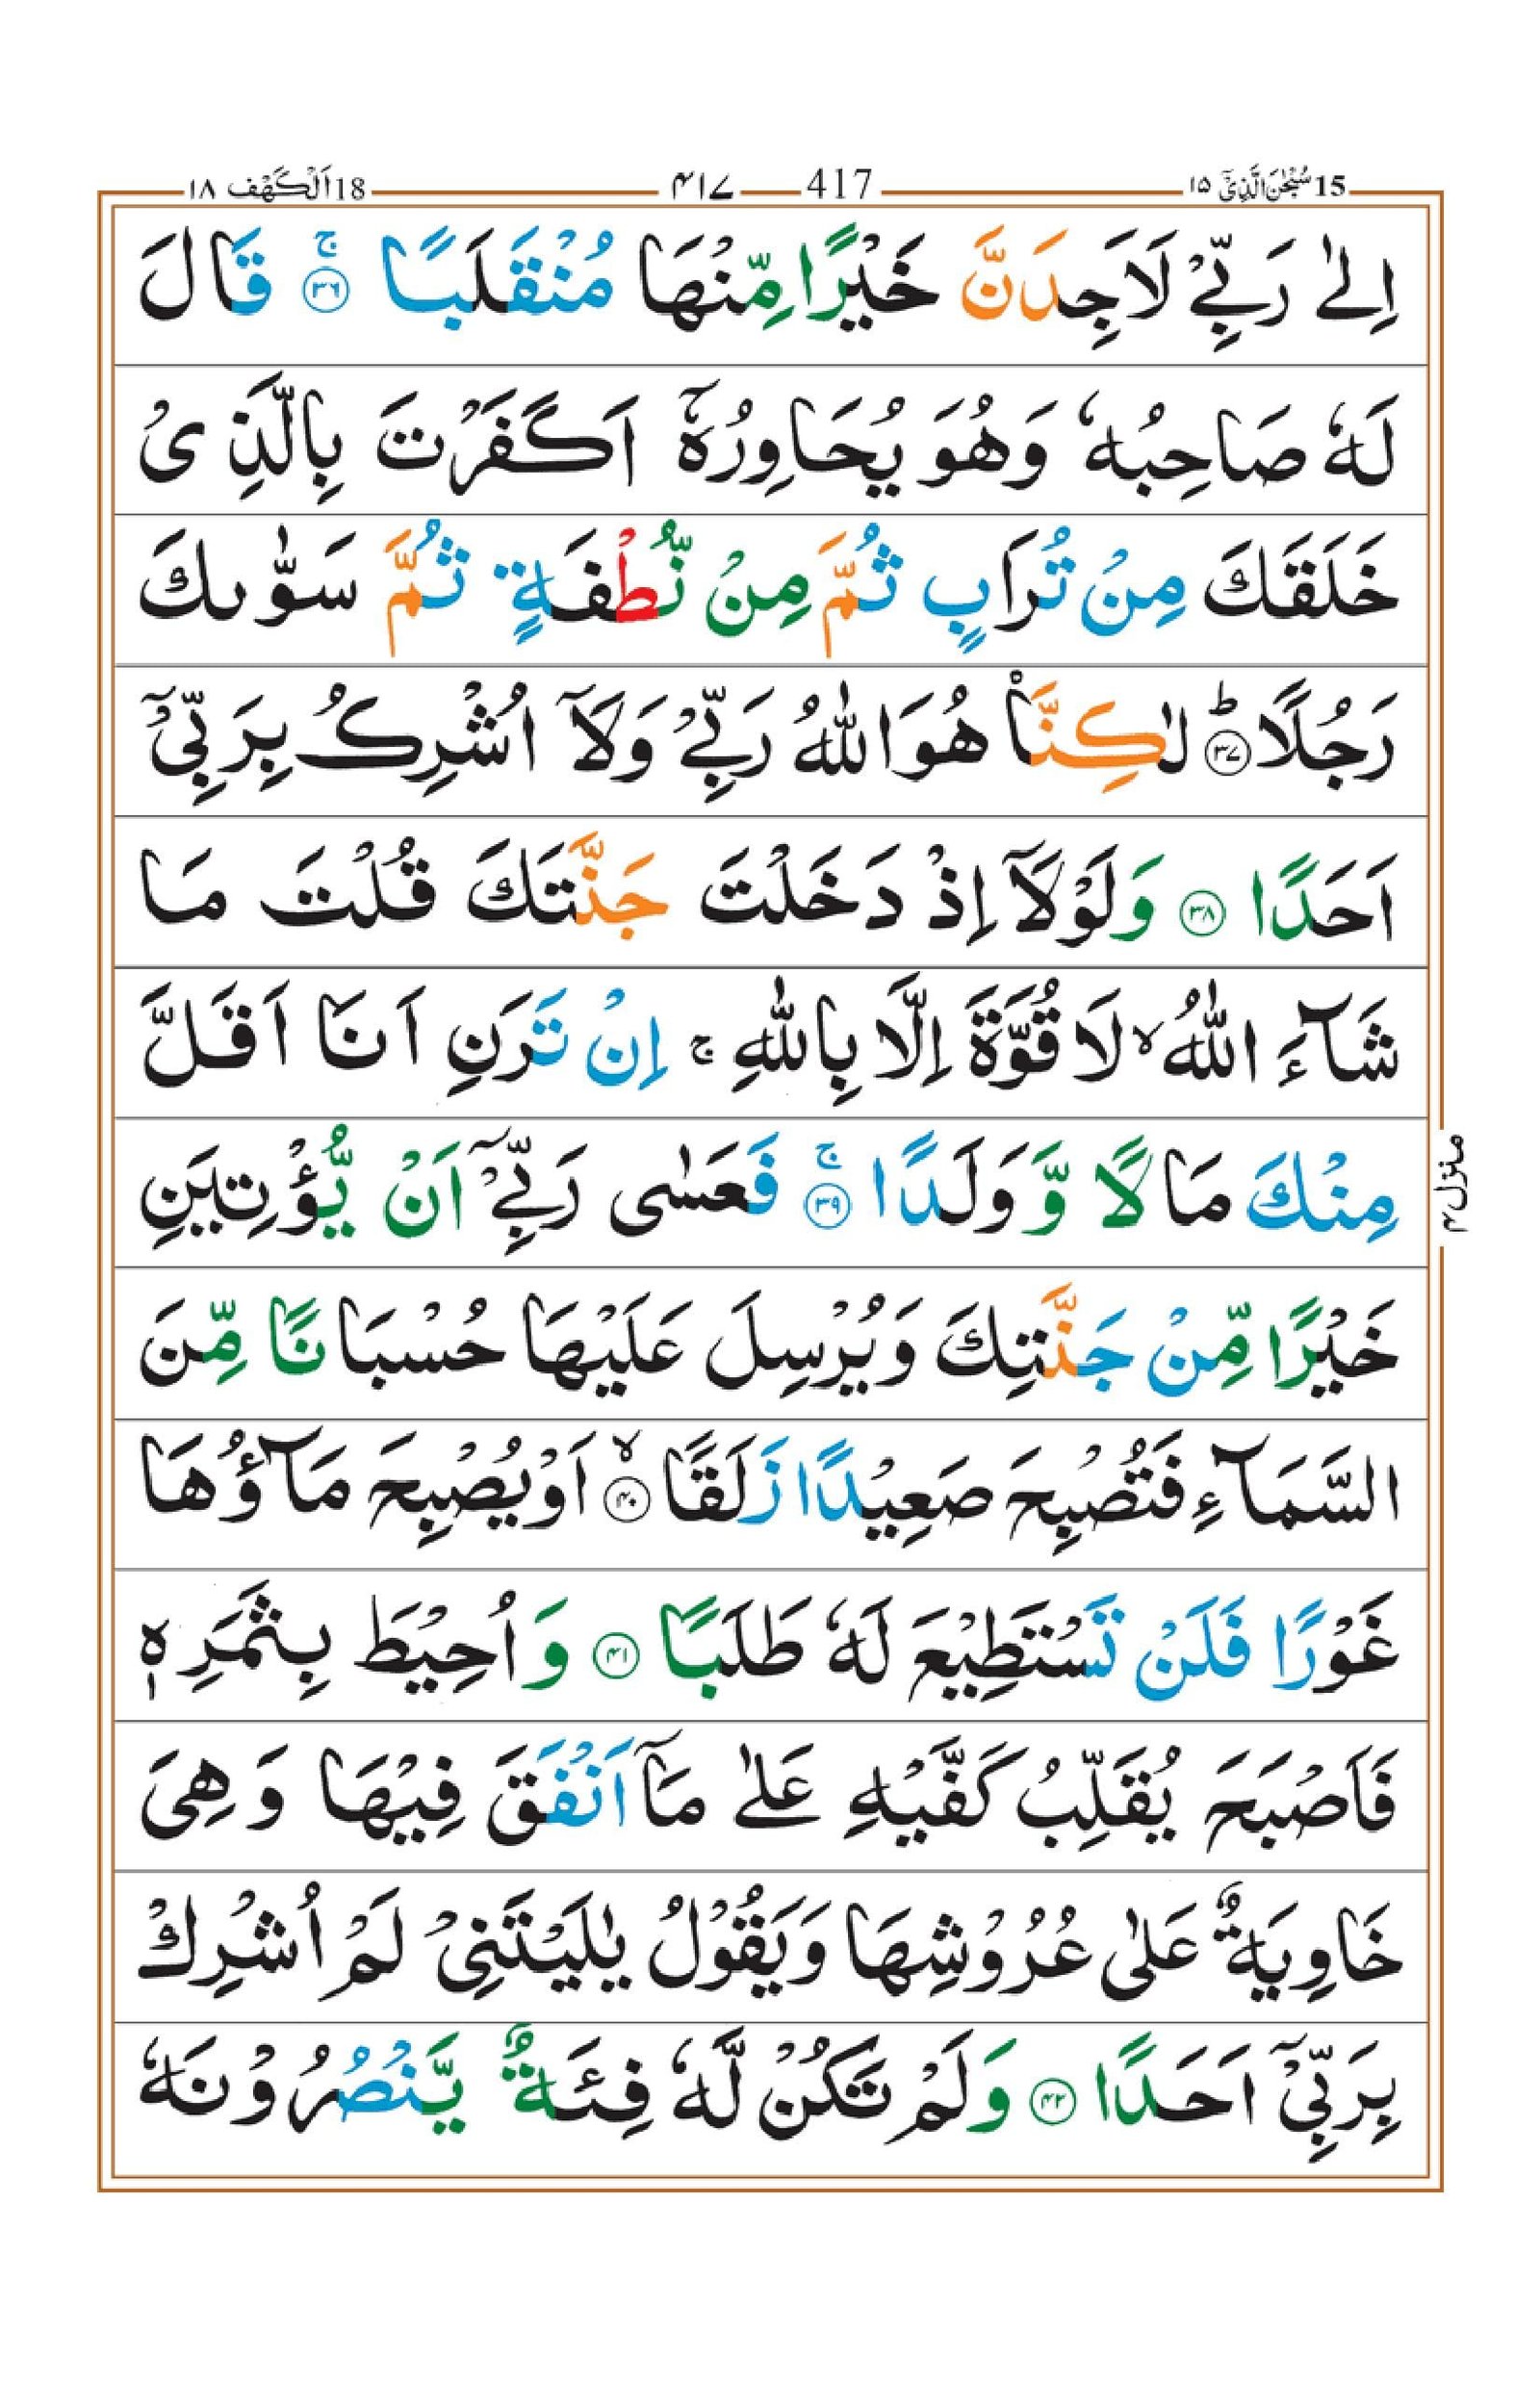 15 سُبْحٰنَ الَّذِیْۤ ١٥ 417 ٤١٧ 18 اَلْكَهْف ١٨
اِلٰى رَبِّیْ لَاَجِدَنَّ خَیْرًا مِّنْهَا مُنْقَلَبًا ۚ ﴿٣٦﴾ قَالَ
لَهٗ صَاحِبُهٗ وَهُوَ یُحَاوِرُهٗۤ اَكَفَرْتَ بِالَّذِیْ
خَلَقَكَ مِنْ تُرَابٍ ثُمَّ مِنْ نُّطْفَةٍ ثُمَّ سَوّٰىكَ
رَجُلًا ؕ ﴿٣٧﴾ لٰكِنَّا۠ هُوَ اللّٰهُ رَبِّیْ وَلَاۤ اُشْرِكُ بِرَبِّیْۤ
اَحَدًا ﴿٣٨﴾ وَلَوْلَاۤ اِذْ دَخَلْتَ جَنَّتَكَ قُلْتَ مَا
شَآءَ اللّٰهُ ۙ لَا قُوَّةَ اِلَّا بِاللّٰهِ ۚ اِنْ تَرَنِ اَنَا اَقَلَّ
مِنْكَ مَالًا وَّ وَلَدًا ۚ ﴿٣٩﴾ فَعَسٰى رَبِّیْۤ اَنْ یُّؤْتِیَنِ
خَیْرًا مِّنْ جَنَّتِكَ وَیُرْسِلَ عَلَیْهَا حُسْبَانًا مِّنَ
السَّمَآءِ فَتُصْبِحَ صَعِیْدًا زَلَقًا ۙ ﴿٤٠﴾ اَوْ یُصْبِحَ مَآؤُهَا
غَوْرًا فَلَنْ تَسْتَطِیْعَ لَهٗ طَلَبًا ﴿٤١﴾ وَاُحِیْطَ بِثَمَرِهٖ
فَاَصْبَحَ یُقَلِّبُ كَفَّیْهِ عَلٰى مَاۤ اَنْفَقَ فِیْهَا وَهِیَ
خَاوِیَةٌ عَلٰى عُرُوْشِهَا وَیَقُوْلُ یٰلَیْتَنِیْ لَمْ اُشْرِكْ
بِرَبِّیْۤ اَحَدًا ﴿٤٢﴾ وَلَمْ تَكُنْ لَّهٗ فِئَةٌ یَّنْصُرُوْنَهٗ
منزل ٤